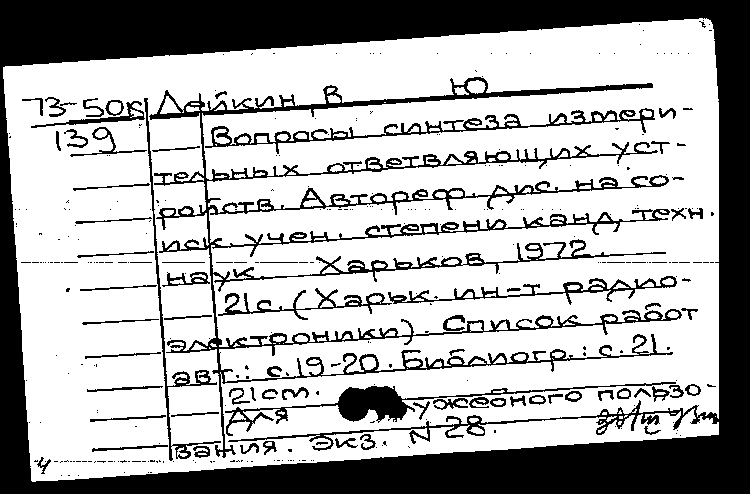 73-50к Лейкин, В Ю
139 Вопросы синтеза измери-
тельных ответвляющих уст-
ройств. Автореф. дис. на со-
иск. учен. степени канд. техн.
наук. Харьков, 1972.
21с. (Харьк. ин-т радио-
электроники). Список работ
авт.: с.19-20. Библиогр.: с.21.
21см.
Для ужебного пользо-
вания. Экз. N 28.
4